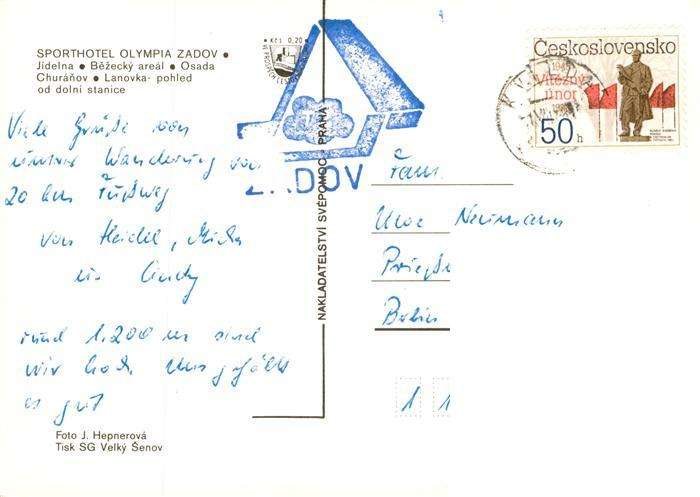 SPORTHOTEL OLYMPIA ZADOV •
Jídelna • Běžecký areál • Osada
Churáňov • Lanovka- pohled
od dolní stanice
Kčs 0,20
Československo
1948
Vítězný
únor
1988
50 h
ZADOV
NAKLADATELSTVÍ SVÉPOMOC PRAHA
Viele Grüße von
unserer Wanderung von
20 km Fußweg
von Heidel, Micha
u. Andy
rund 1.200 m sind
wir hoch. Uns gefällts
es gut
Fam.
Uwe Neumann
Berlin
1 1
Foto J. Hepnerová
Tisk SG Velký Šenov